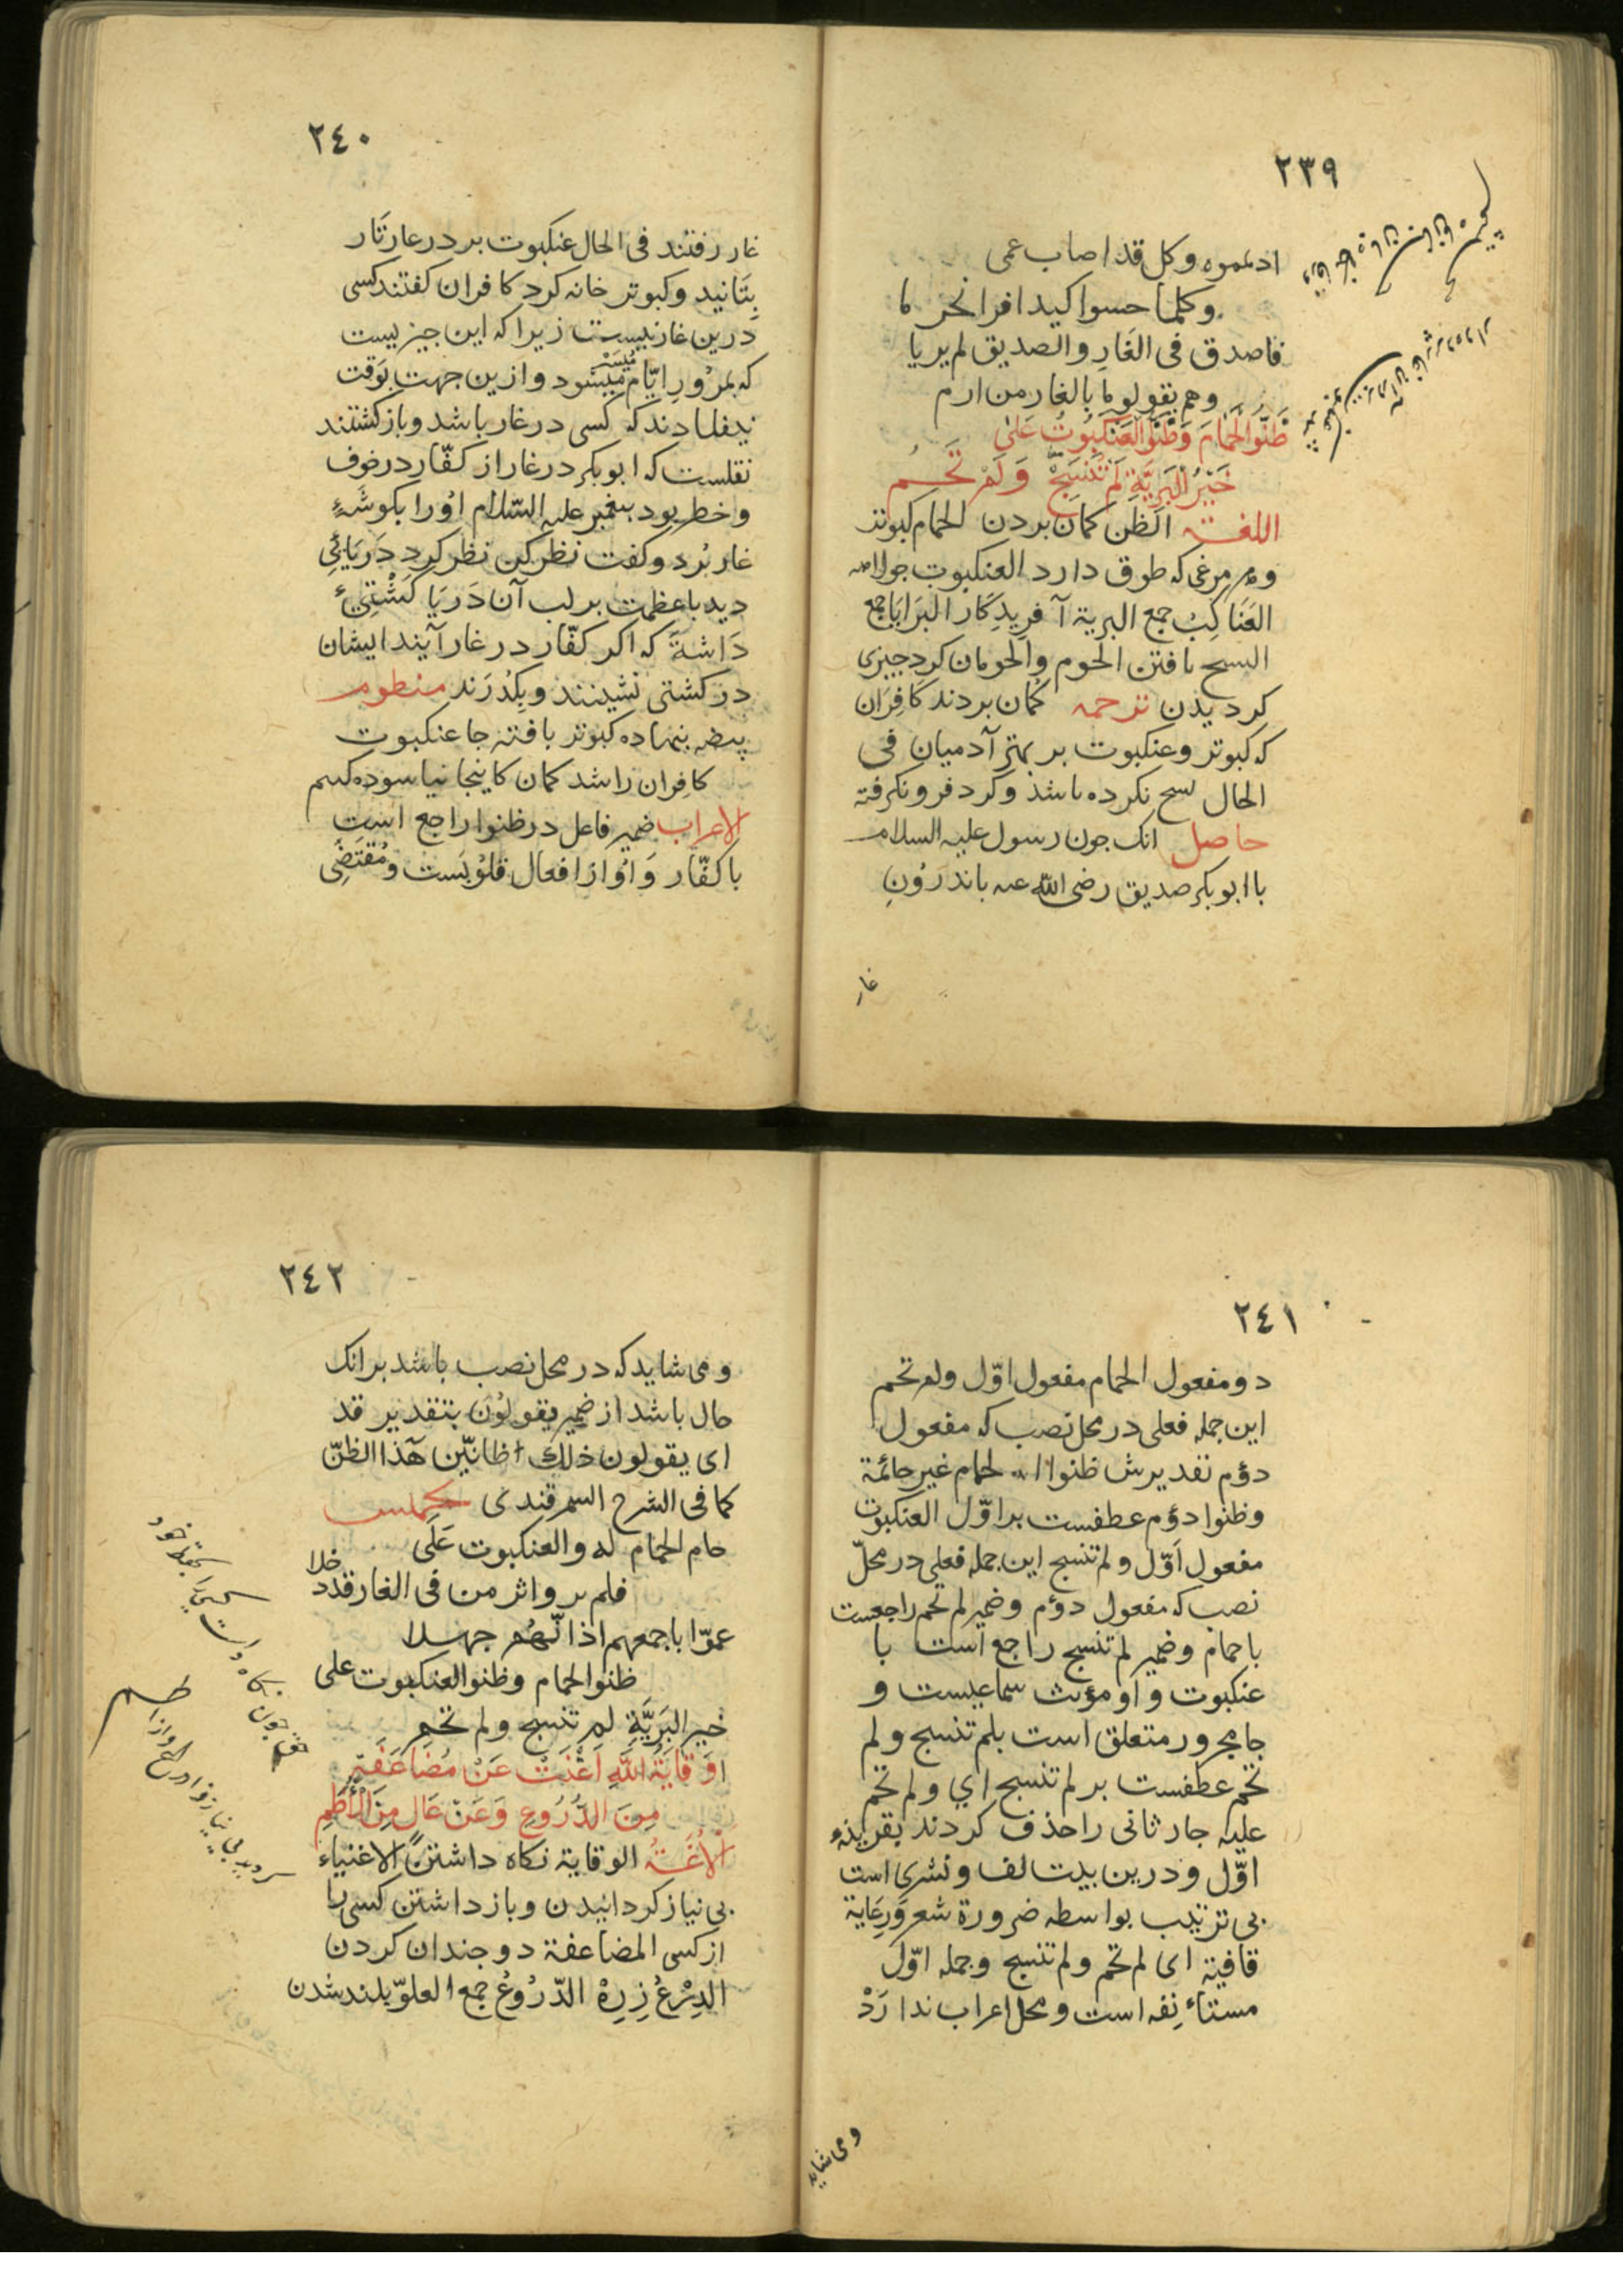 ٢٣٩
وكل قد اصاب عمى
وكلما حسوا كيد افرا
فاصدق فى الغار والصديق لم يريا
وهم يقولو ما بالغار من ارم
ظَنُّوا الْحَمَامَ وَظَنُّوا الْعَنْكَبُوتَ عَلَى
خَيْرِ الْبَرِيَّةِ لَمْ تَنْسِجْ وَلَمْ تَحُمِ
اللغة الظن كمان بردن الحمام كبوتر
و مرغى كه طوق دارد العنكبوت
العَنَاكِبُ جمع البرية آفرِيدِكَار البَرَايَا جمع
السج بافتن الحوم والحومان كرد جيزى
كرديدن ترجمه كمان بردند كَافِرَان
كه كبوتر وعنكبوت بر بهتر آدميان فى
الحال نسج نكرده باشد وكرد فرو نكرفته
حاصل انك جون رسول عليه السلام
با ابو بكر صديق رضى الله عنه باندرُونِ
غار
٢٤٠
غار رفتند فى الحال عنكبوت بر در غار تَار
بتَانيد وكبوتر خانه كرد كافران كفتند كسى
درين غار نيست زيراكه اين جيز يست
كه بمرُورِ ايّام ميشود وازين جهت بَوَقت
ميسر
كه كسى در غار باشد وباز كشتند
نقلست كه ابو بكر در غار از كفّار در خوف
وخطر بود پيغمبر عليه السّلام اورا بكوشَهءِ
غار بُرد وكفت نظر كن نظر كرد دَرَيَائى
ديد باعظمت بر لب آن دَريَا كَشْتِىء
دَاشتَه كه اكر كفّار در غار آيند ايشان
در كشتى نشينند وبكذرَند منظوم
بيضه بنهاده كبوتر بافته جا عنكبوت
كافِران را شد كمان كاينجا نياسوده كسم
الاعراب ضمير فاعل در ظنوا راجع است
با كفّار وَاوُ از افعال قلوبَست ومُقتَضِى
٢٤١
دو مفعول الحمام مفعول اوّل ولم تحم
اين جمله فعلى در محل نصب كه مفعول
دوُم تقديرش ظنوا الحمام غير حائمة
وظنوا دوُم عطفست بر اوّل العنكبوت
مفعول اَوّل ولم تنسج اين جمله فعلى در محلّ
نصب كه مفعول دوُم وضمير لم تحم راجعست
با حمام وضمير لم تنسج راجع است با
عنكبوت و او مؤنث سماعيست و
جا مجرور متعلق است بلم تنسج ولم
تحم عطفست بر لم تنسج اي ولم تحم
عليه جار ثانى را حذف كردند بقرينهء
اوّل ودرين بيت لف ونشرى است
بى ترتيب بواسطه ضرورة شعر وَرِعَاية
قافية اى لم تحم ولم تنسج وجمله اوّل
مستاء نِفه است ومحل اعراب ندارَدْ
ومى شايد
٢٤٢
ومى شايد كه در محل نصب باشد برانك
حال باشد از ضمير يقولوُن بتقدير قد
اى يقولون ذلك ظانّين هَذا الظنّ
كما فى الشرح السمرقندى
حام الحمام له والعنكبوت عَلَى
فلم يروا اثر من فى الغار قد خلا
عمّوا باجمعهم اذ انّهُم جهلا
ظنوا الحمام وظنوا العنكبوت على
خير البَريَّةِ لم تنسج ولم تحمِ
وِقَايَةُ اللَّهِ اَغْنَتْ عَنْ مُضَاعَفَةٍ
مِنَ الدُّرُوعِ وَعَنْ عَالٍ مِنَ الْأُطُمِ
اللُّغَةُ الوقاية نكاه داشتن الاغنياء
بى نياز كردانيدن وباز داشتن كسى را
از كسى المضاعفة دو جندان كردن
الدِرْعُ زِرِهْ الدّرُوعُ جمع العلوّ بلند شدن